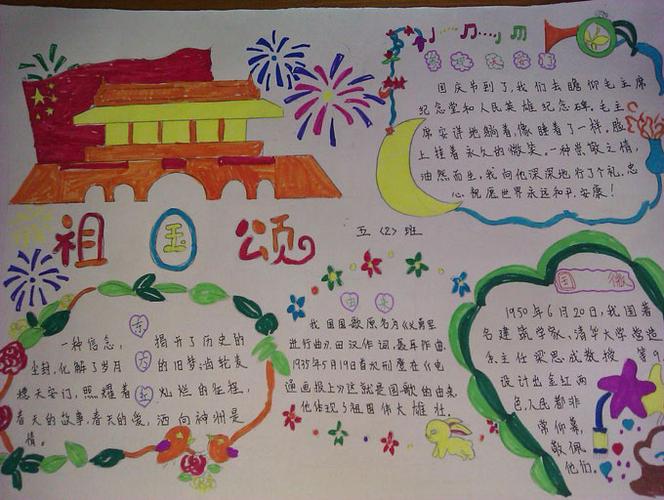 参观天安门
国庆节到了,我们去瞻仰毛主席
纪念堂和人民英雄纪念碑。毛主
席安详地躺着,像睡着了一样,脸
上挂着永久的微笑。一种崇敬之情,
油然而生,我向他深深地行了个礼,忠
心祝愿世界永远和平,安康!
祖国颂
五〈2〉班
一种信念,
揭开了历史的
尘封,化解了岁月
的旧梦;齿轮麦
穗天安门,照耀着
灿烂的征程,
春天的故事,春天的爱,洒向神州是
情。
由来
我国国歌原名为《义勇军
进行曲》,田汉作词,聂耳作曲。
1935年5月19日首次刊登在《电
通画报上》,这就是国歌的由来,
他体现了祖国伟大雄壮。
国徽
1950年6月20日,我国著
名建筑学家、清华大学营造
系主任梁思成教授 第9
设计出金红两
色,人民都非
常仰慕,
敬佩
他们。